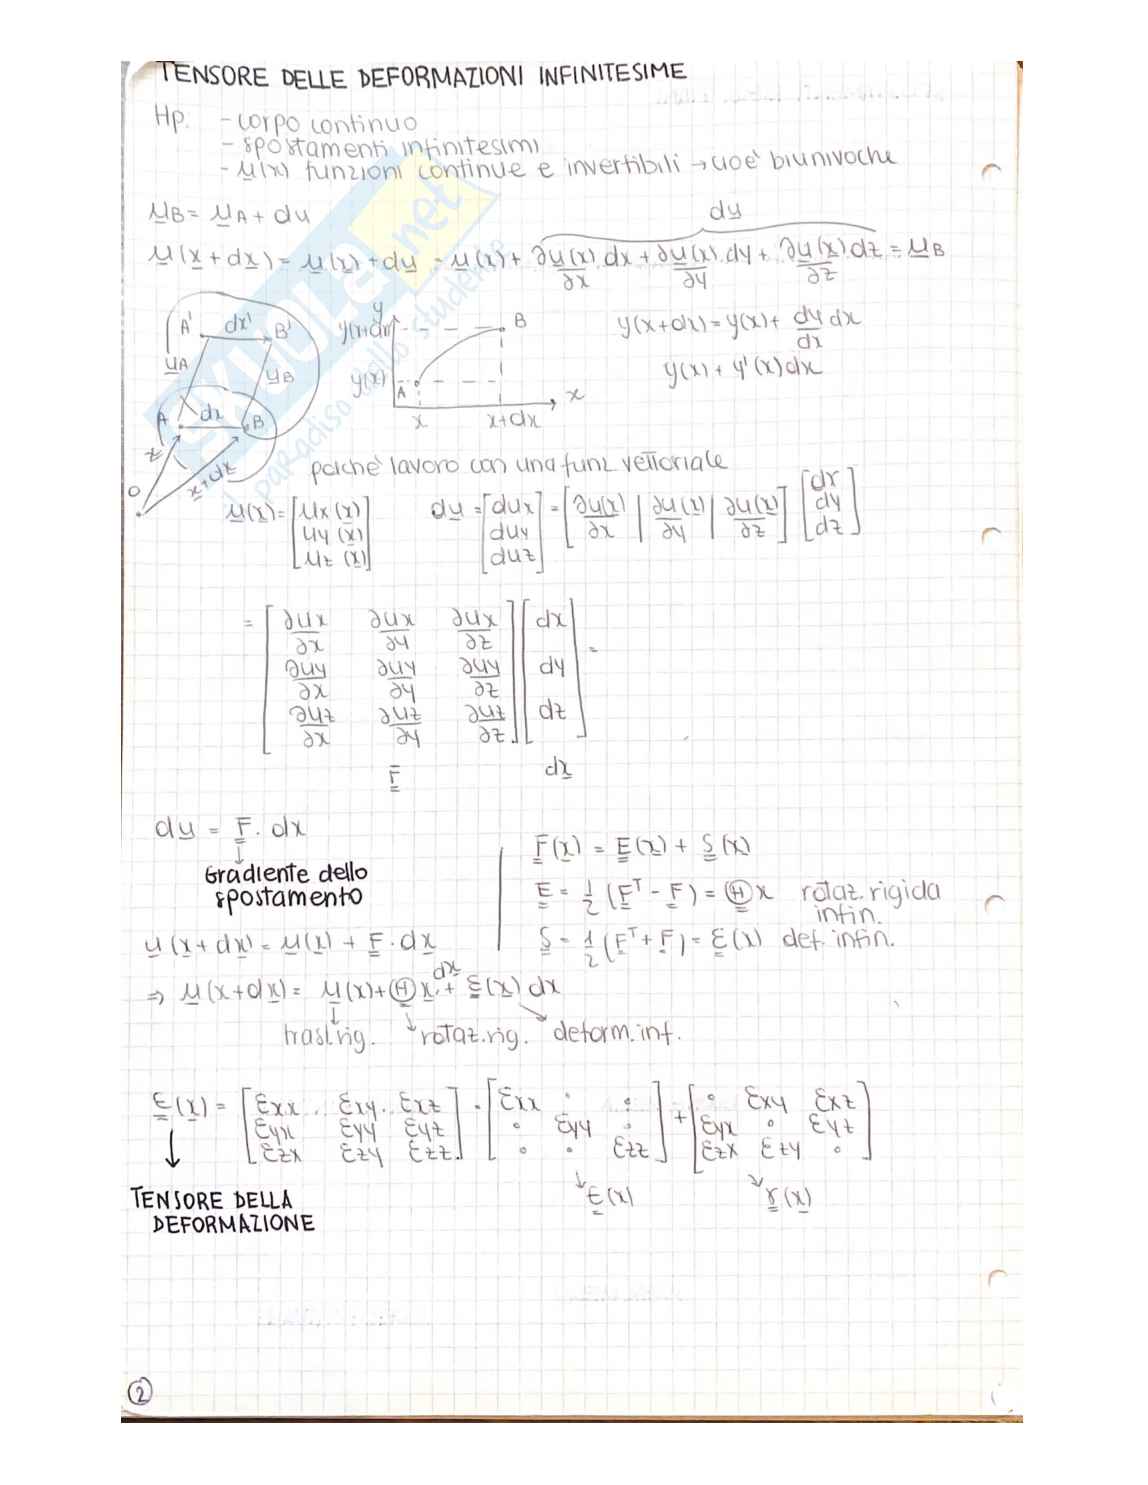 TENSORE DELLE DEFORMAZIONI INFINITESIME
Hp. - corpo continuo
- spostamenti infinitesimi
- u(x) funzioni continue e invertibili → cioè biunivoche
u_B = u_A + du
du
u(x + dx) = u(x) + du = u(x) + ∂u(x)/∂x dx + ∂u(x)/∂y dy + ∂u(x)/∂z dz = u_B
A' dx' B'
u_A u_B
A dx B
x x+dx
O
y
y(x+dx) B
y(x) A
x x+dx x
y(x+dx) = y(x) + dy/dx dx
y(x) + y'(x) dx
poichè lavoro con una funz. vettoriale
u(x) = [ux(x) uy(x) uz(x)] du = [dux duy duz] = [∂u(x)/∂x | ∂u(x)/∂y | ∂u(x)/∂z] [dx dy dz]
= [ ∂ux/∂x ∂ux/∂y ∂ux/∂z ] [ dx ] =
∂uy/∂x ∂uy/∂y ∂uy/∂z dy
∂uz/∂x ∂uz/∂y ∂uz/∂z dz
F dx
du = F · dx
Gradiente dello
spostamento
u(x+dx) = u(x) + F · dx
F(x) = E(x) + S(x)
E = 1/2 (F^T - F) = Ⓗ x rotaz. rigida
infin.
S = 1/2 (F^T + F) = ε(x) def. infin.
⇒ u(x+dx) = u(x) + Ⓗ x dx + ε(x) dx
trasl. rig. rotaz. rig. deform. inf.
ε(x) = [ εxx εxy εxz ] = [ εxx · · ] + [ · εxy εxz ]
εyx εyy εyz · εyy · εyx · εyz
εzx εzy εzz · · εzz εzx εzy ·
ε(x) γ(x)
TENSORE DELLA
DEFORMAZIONE
2
SKUOLA.net
il paradiso dello studente